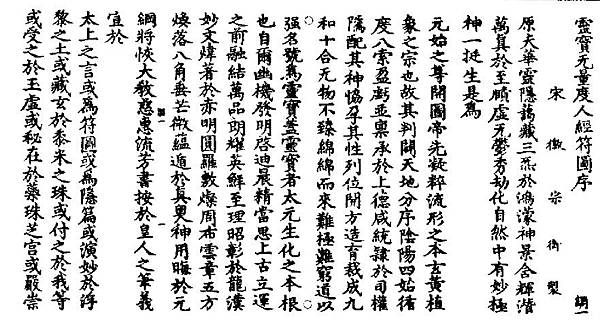 靈寶无量度人經符圖序
宋徽宗御製
原夫華靈隱藹藏三炁於鴻濛神景含輝潛
萬真於至賾虛无鬱秀劫化自然中有妙極
神一挺生是爲
元始之尊開圖帝先凝粹流形之本玄黃植
象之宗也故其判開天地分序陰陽四始循
度八索盈虧並稟承於上德咸統隸於司權
隱配其神恊孕其性列位開方造育裁成九
和十合无物不臻綿綿而來難極難窮道以
强名號爲靈寶蓋靈寶者太元生化之本根
也自爾幽機發明啓迪晨精當思上古立運
之前融結萬品朗耀英鮮至理昭彰於龍漢
妙文煒著於赤明圓羅數燦周布雲章五方
煥落八角垂芒微蘊遁於真更神用晦於元
綱將恢大教惑惠流芳書按於皇人之筆義
宣於
太上之言或爲符圖或爲隱篇或演妙於浮
黎之土或藏玄於黍米之珠或付之於我等
或受之於玉虛或秘在於蘂珠芝宮或嚴崇